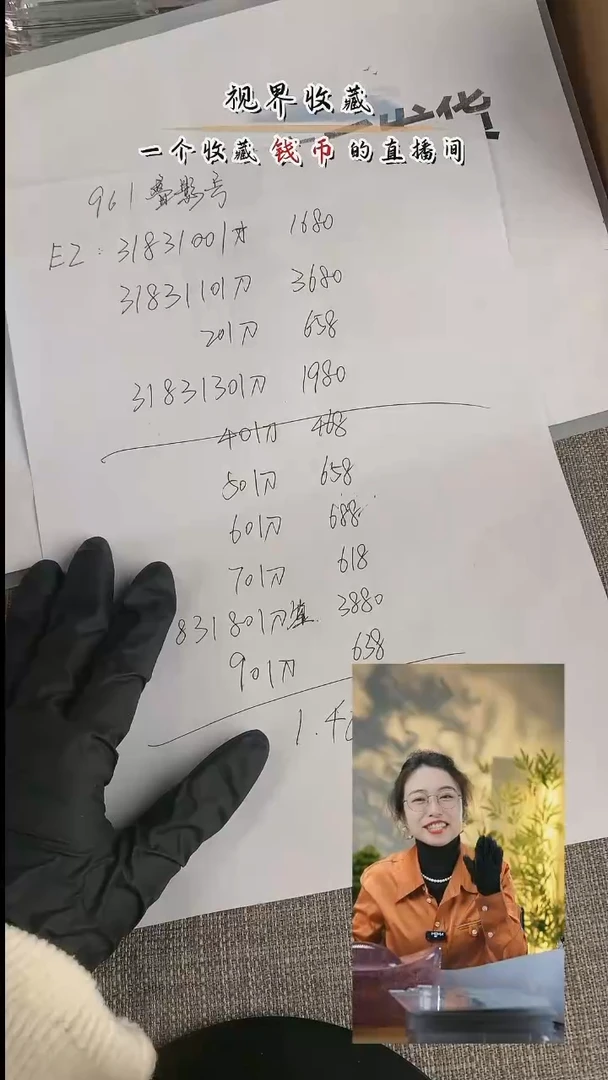 视界收藏
一个收藏钱币的直播间
961叠影号
EZ: 31831001刀 1680
31831101刀 3680
201刀 658
31831301刀 1980
401刀 468
501刀 658
601刀 688
701刀 618
831801刀 3880
901刀 658